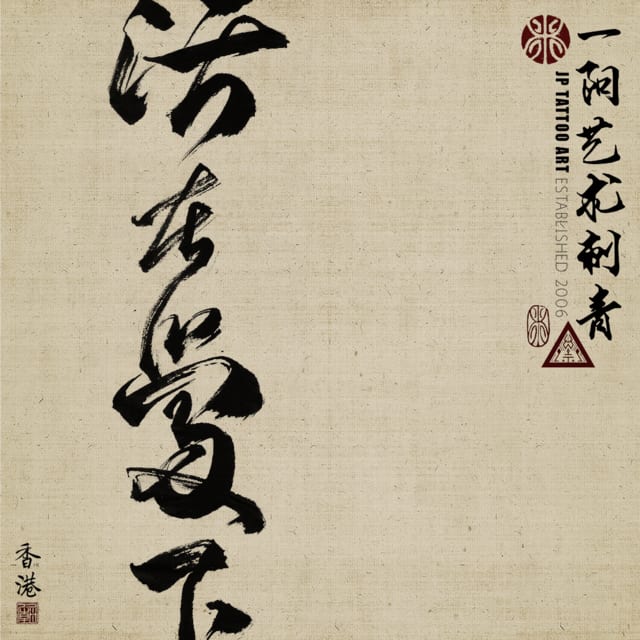 一阳艺术刺青
JP TATTOO ART ESTABLISHED 2006
活在當下
香港